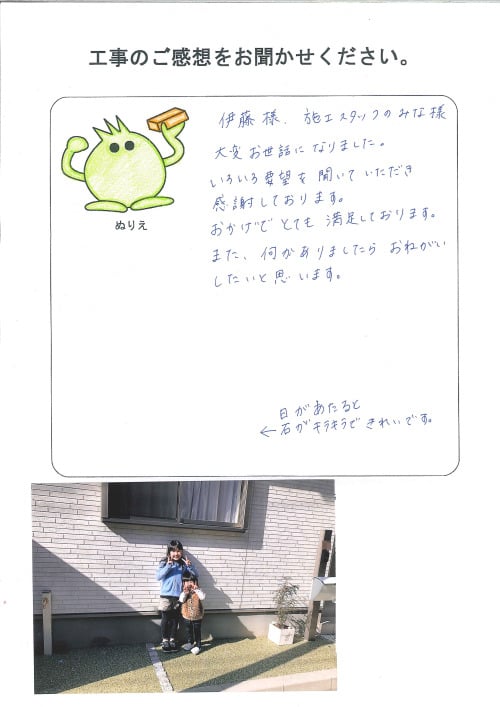 工事のご感想をお聞かせください。
ぬりえ
伊藤様、施工スタッフのみな様
大変お世話になりました。
いろいろ要望を聞いていただき
感謝しております。
おかげでとても満足しております。
また、何かありましたらおねがい
したいと思います。
日があたると
←石がキラキラできれいです。